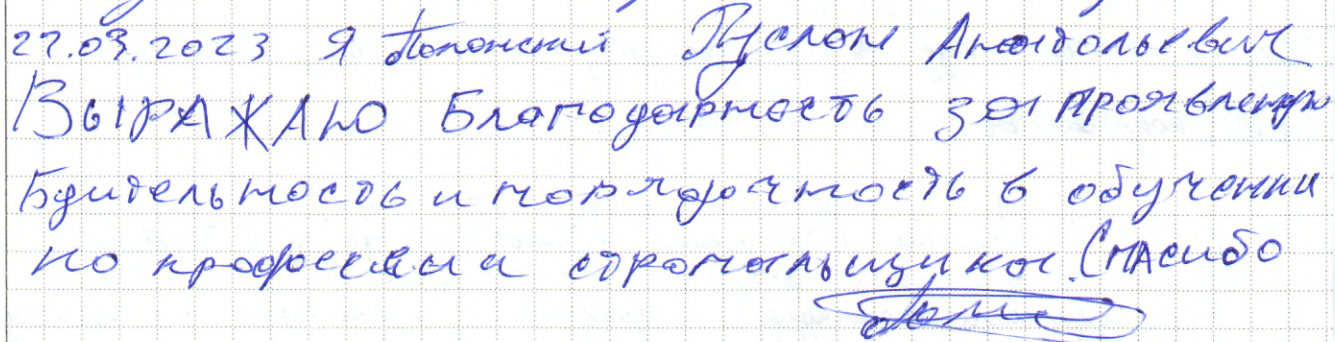 27.09.2023 Я Полонский Руслан Анатольевич
ВЫРАЖАЮ Благодарность за проявленную
Бдительность и порядочность в обучении
по профессии стропальщика. Спасибо